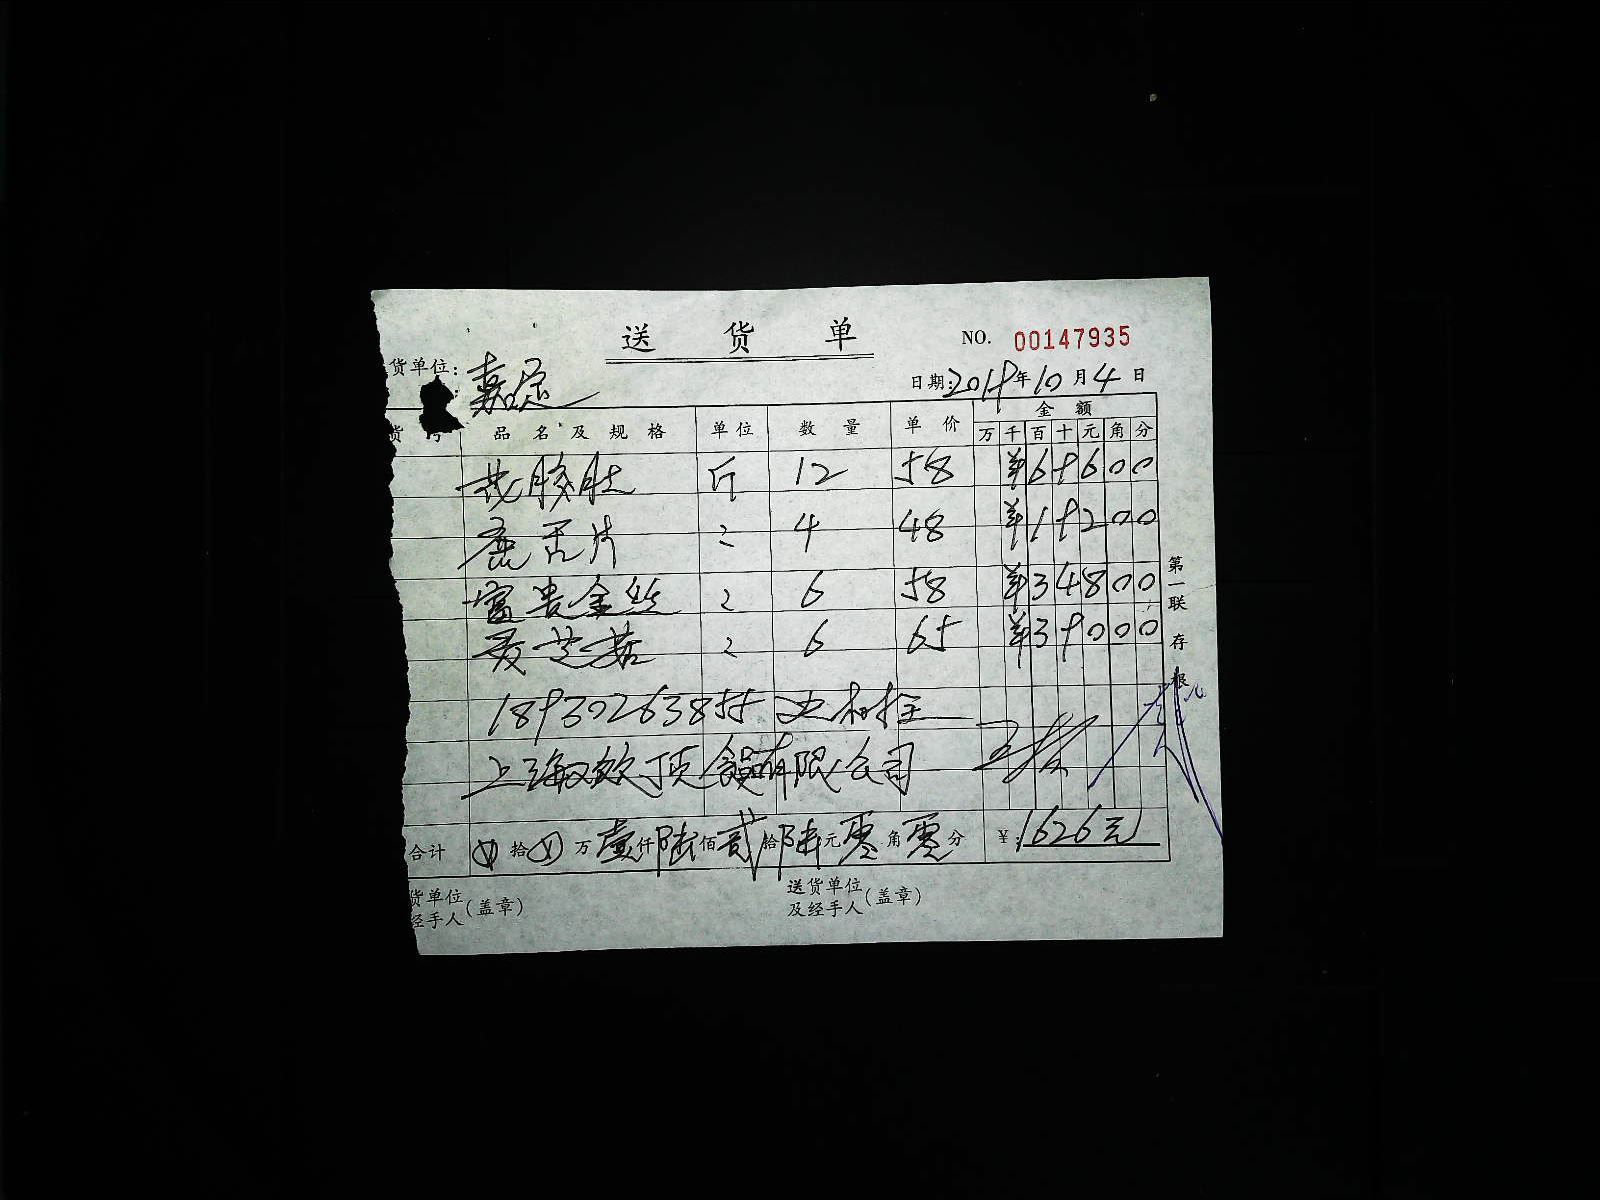 送 货 单
NO. 00147935
货单位: 嘉定
日期: 2019年10月4日
品名及规格 单位 数量 单价 金额
万 千 百 十 元 角 分
花胶肚 斤 12 58 ¥69600
鹿舌片 〃 4 48 ¥19200
富贵金丝 〃 6 58 ¥34800
6 65 ¥39000
18930263855
上海 顶 有限公司
合计 ⊗拾⊗万壹仟陆佰贰拾陆元零角零分 ¥:1626元
第一联 存根
货单位
经手人(盖章)
送货单位
及经手人(盖章)